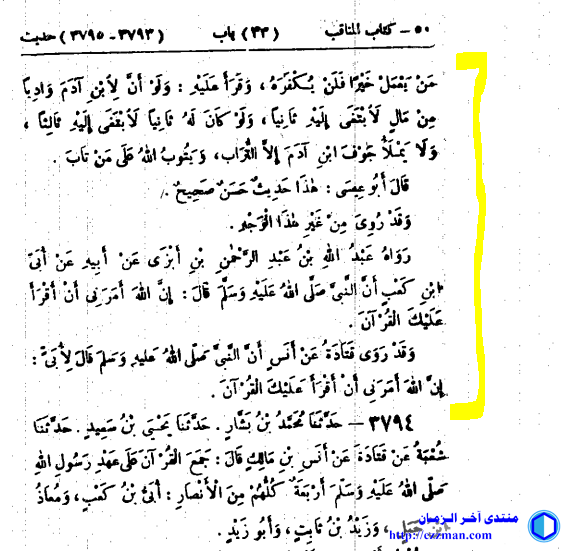 ٥٠ – كتاب المناقب (٣٣) باب (٣٧٩٣ – ٣٧٩٥) حديث
مَنْ يَعْمَلْ خَيْرًا فَلَنْ يُكْفَرَهُ ، وَقَرَأَ عَلَيْهِ : وَلَوْ أَنَّ لِابْنِ آدَمَ وَادِيًا
مِنْ مَالٍ لَابْتَغَى إِلَيْهِ ثَانِيًا ، وَلَوْ كَانَ لَهُ ثَانِيًا لَابْتَغَى إِلَيْهِ ثَالِثًا ،
وَلَا يَمْلَأُ جَوْفَ ابْنِ آدَمَ إِلَّا التُّرَابُ ، وَيَتُوبُ اللهُ عَلَى مَنْ تَابَ .
قَالَ أَبُو عِيسَى : هَذَا حَدِيثٌ حَسَنٌ صَحِيحٌ .
وَقَدْ رُوِيَ مِنْ غَيْرِ هَذَا الْوَجْهِ .
رَوَاهُ عَبْدُ اللهِ بْنُ عَبْدِ الرَّحْمٰنِ بْنِ أَبْزَى عَنْ أَبِيهِ عَنْ أُبَيِّ
ابْنِ كَعْبٍ أَنَّ النَّبِيَّ صَلَّى اللهُ عَلَيْهِ وَسَلَّمَ قَالَ : إِنَّ اللهَ أَمَرَنِي أَنْ أَقْرَأَ
عَلَيْكَ الْقُرْآنَ .
وَقَدْ رَوَى قَتَادَةُ عَنْ أَنَسٍ أَنَّ النَّبِيَّ صَلَّى اللهُ عَلَيْهِ وَسَلَّمَ قَالَ لِأُبَيٍّ :
إِنَّ اللهَ أَمَرَنِي أَنْ أَقْرَأَ عَلَيْكَ الْقُرْآنَ .
٣٧٩٤ – حَدَّثَنَا مُحَمَّدُ بْنُ بَشَّارٍ . حَدَّثَنَا يَحْيَى بْنُ سَعِيدٍ . حَدَّثَنَا
شُعْبَةُ عَنْ قَتَادَةَ عَنْ أَنَسِ بْنِ مَالِكٍ قَالَ : جَمَعَ الْقُرْآنَ عَلَى عَهْدِ رَسُولِ اللهِ
صَلَّى اللهُ عَلَيْهِ وَسَلَّمَ أَرْبَعَةٌ كُلُّهُمْ مِنَ الْأَنْصَارِ : أُبَيُّ بْنُ كَعْبٍ ، وَمُعَاذُ
ابْنُ جَبَلٍ ، وَزَيْدُ بْنُ ثَابِتٍ ، وَأَبُو زَيْدٍ .
منتدى آخر الزمان
http://ezzman.com